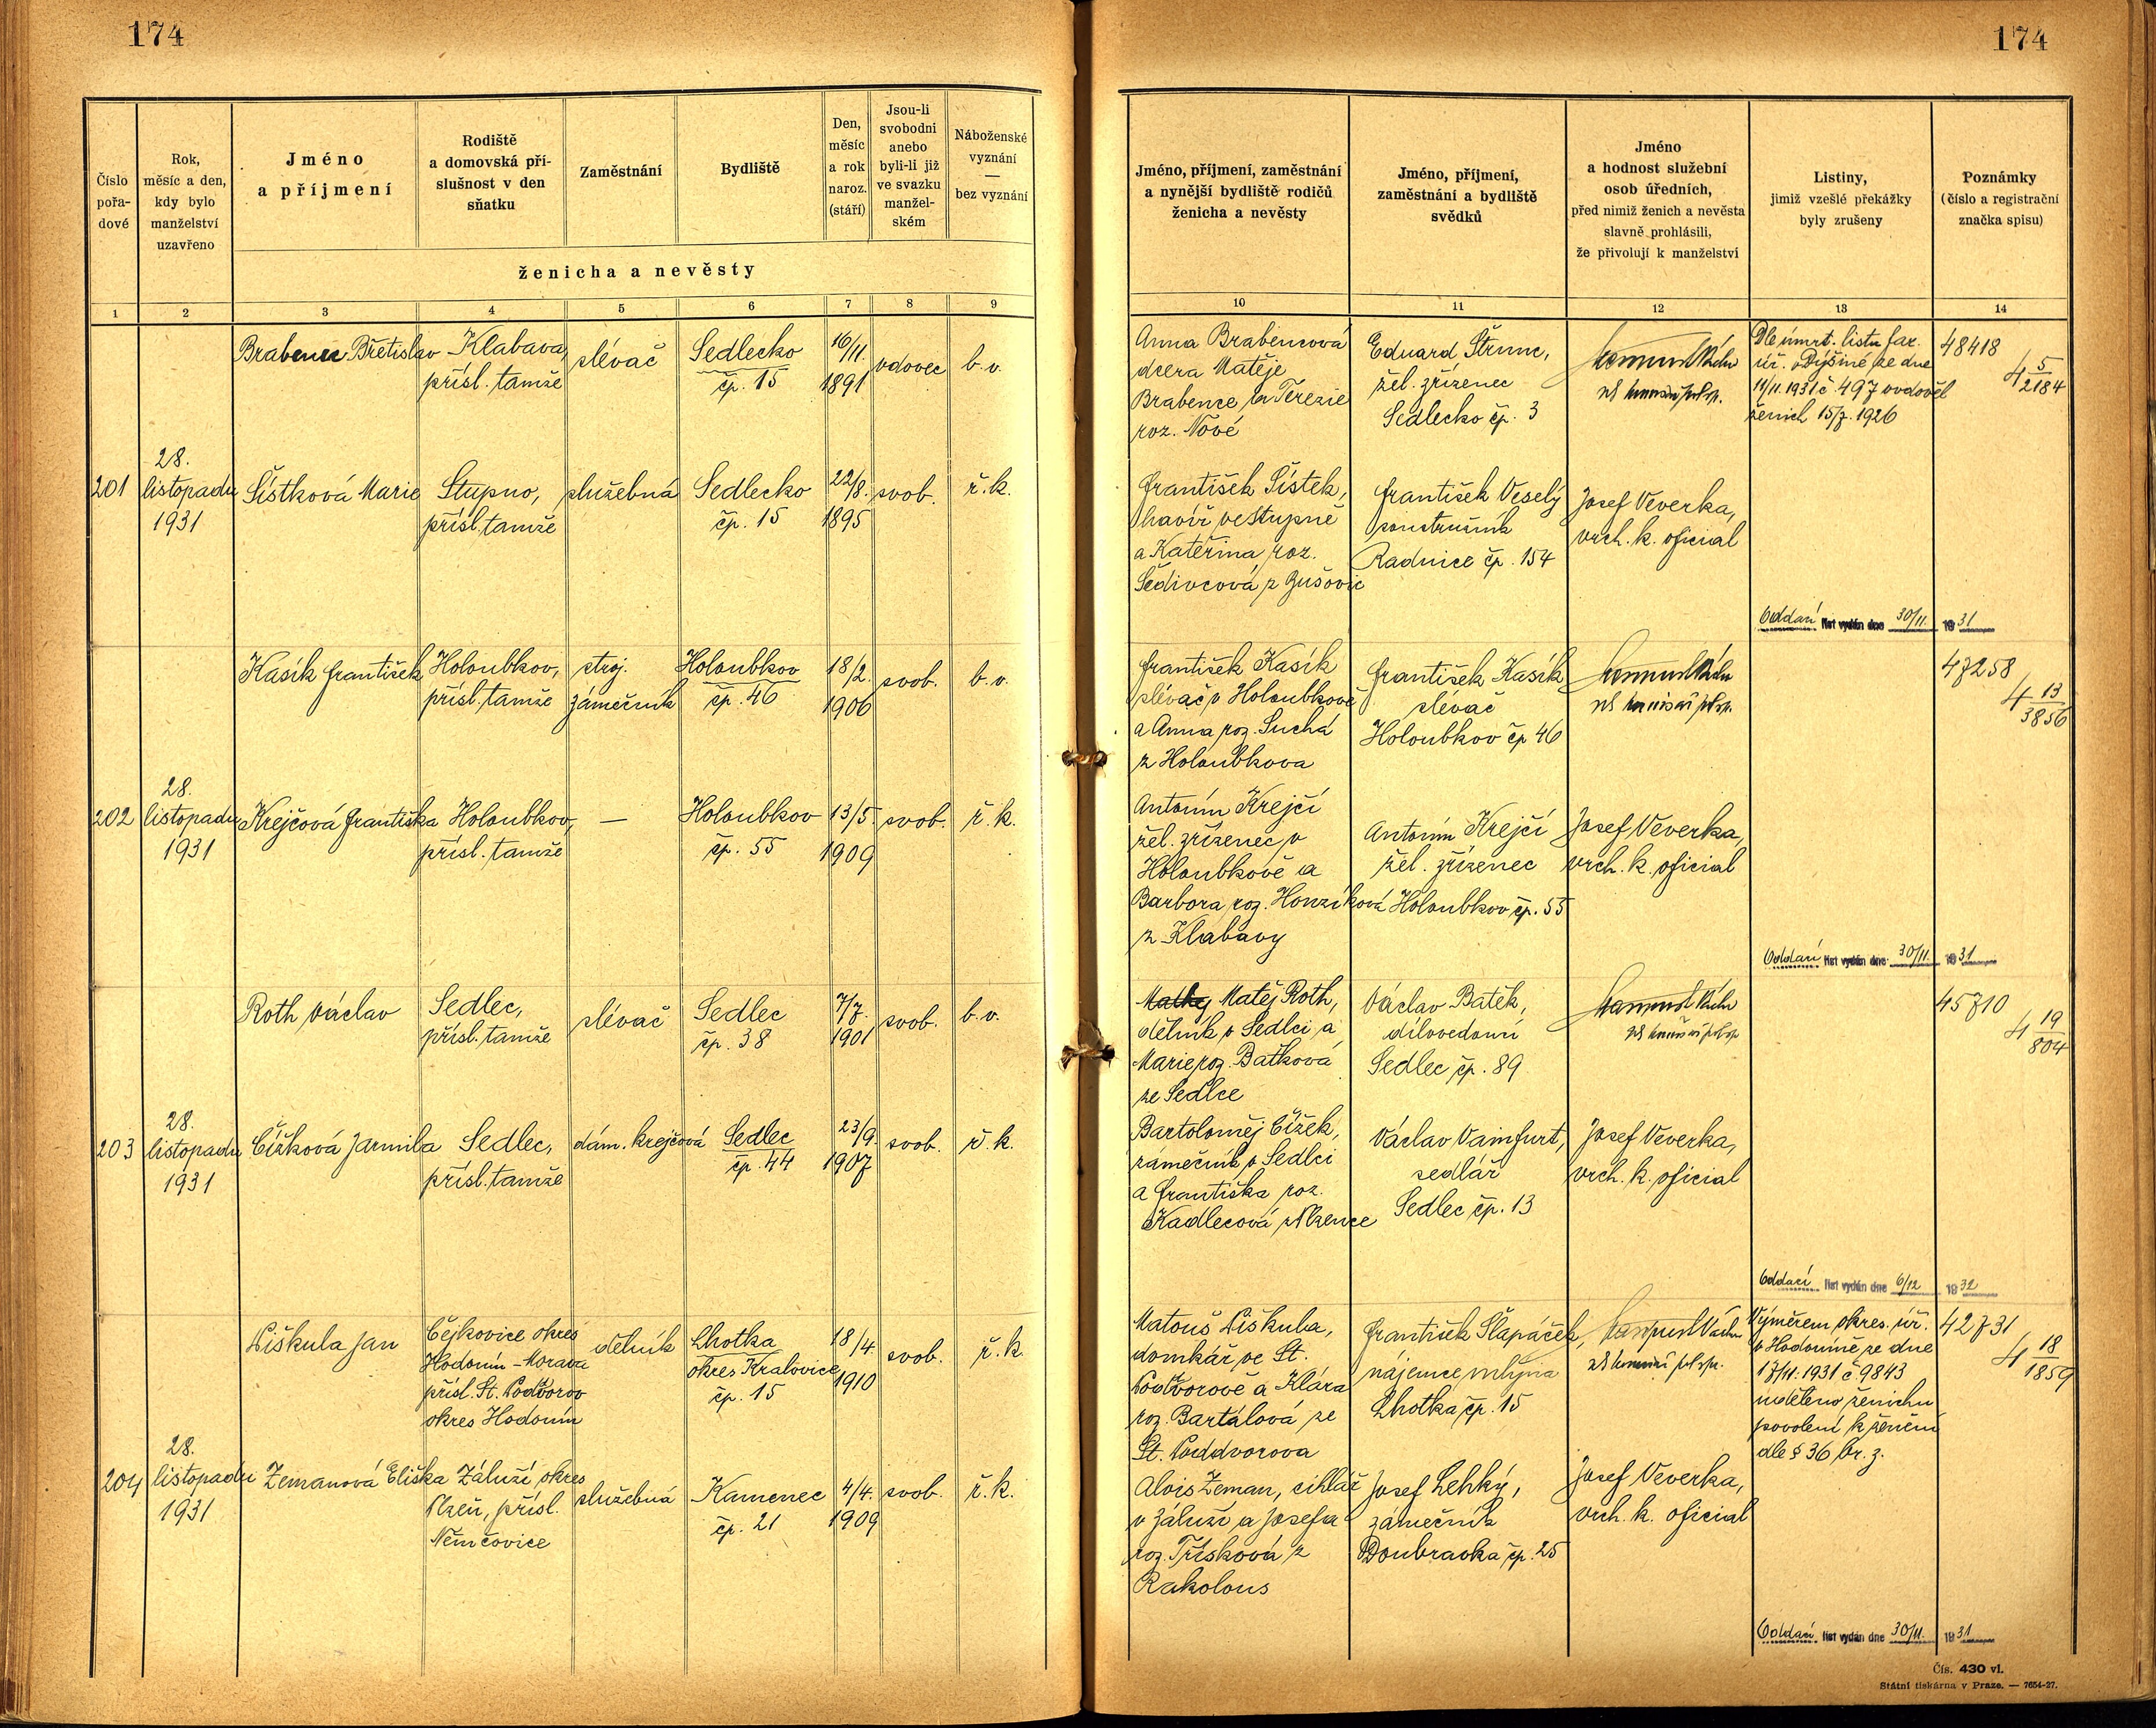 174
174
Číslo pořa- dové
Rok, měsíc a den, kdy bylo manželství uzavřeno
Jméno a příjmení
Rodiště a domovská pří- slušnost v den sňatku
Zaměstnání
Bydliště
Den, měsíc a rok naroz. (stáří)
Jsou-li svobodni anebo byli-li již ve svazku manžel- ském
Náboženské vyznání — bez vyznání
ženicha a nevěsty
Jméno, příjmení, zaměstnání a nynější bydliště rodičů ženicha a nevěsty
Jméno, příjmení, zaměstnání a bydliště svědků
Jméno a hodnost služební osob úředních, před nimiž ženich a nevěsta slavně prohlásili, že přivolují k manželství
Listiny, jimiž vzešlé překážky byly zrušeny
Poznámky (číslo a registrační značka spisu)
1 2 3 4 5 6 7 8 9 10 11 12 13 14
Brabenec Břetislav
Klabava,
přísl. tamže
slévač
Sedlecko
čp. 15
16/11.
1891
vdovec
b. v.
Anna Brabencová
dcera Matěje
Brabence a Terezie
roz. Nové
Eduard Štrunc,
žel. zřízenec
Sedlecko čp. 3
Dle úmrt. listu far.
úř. v Dýšině ze dne
11/11. 1931 č. 497 ovdověl
ženich 15/7. 1926
48418
4 5/2184
201
28.
listopadu
1931
Šístková Marie
Stupno,
přísl. tamže
služebná
Sedlecko
čp. 15
22/8.
1895
svob.
ř. k.
František Šístek,
havíř ve Stupně
a Kateřina roz.
Šedivcová z Bušovic
František Veselý
soustružník
Radnice čp. 154
Josef Veverka,
vrch. k. oficial
Oddací list vydán dne 30/11. 1931
Kasík František
Holoubkov,
přísl. tamže
stroj.
zámečník
Holoubkov
čp. 46
18/2.
1906
svob.
b. v.
František Kasík
slévač v Holoubkově
a Anna roz. Suchá
z Holoubkova
František Kasík
slévač
Holoubkov čp 46
47258
4 13/3856
202
28.
listopadu
1931
Krejčová Františka
Holoubkov,
přísl. tamže
—
Holoubkov
čp. 55
13/5.
1909
svob.
ř. k.
Antonín Krejčí
žel. zřízenec v
Holoubkově a
Barbora roz. Honzíková
z Klabavy
Antonín Krejčí
žel. zřízenec
Holoubkov čp. 55
Josef Veverka,
vrch. k. oficial
Oddací list vydán dne 30/11. 1931
Roth Václav
Sedlec,
přísl. tamže
slévač
Sedlec
čp. 38
7/7.
1901
svob.
b. v.
Matěj Roth,
dělník v Sedlci a
Marie roz. Baťková
ze Sedlce
Václav Batěk,
dílovedoucí
Sedlec čp. 89
45710
4 19/804
203
28.
listopadu
1931
Čížková Jarmila
Sedlec,
přísl. tamže
dám. krejčová
Sedlec
čp. 44
23/9.
1907
svob.
ř. k.
Bartoloměj Čížek,
zámečník v Sedlci
a Františka roz.
Kadlecová z Plzence
Václav Vainfurt,
sedlář
Sedlec čp. 13
Josef Veverka,
vrch. k. oficial
Oddací list vydán dne 6/12 1932
Piškula Jan
Čejkovice okres
Hodonín – Morava
přísl. St. Podvorov
okres Hodonín
dělník
Lhotka
okres Kralovice
čp. 15
18/4.
1910
svob.
ř. k.
Matouš Piškula,
domkář ve St.
Podvorově a Klára
roz. Bartálová ze
St. Poddvorova
František Šlapáček,
nájemce mlýna
Lhotka čp. 15
Výměrem okres. úř.
v Hodoníně ze dne
17/11. 1931 č 9843
uděleno ženichu
povolení k ženění
dle § 36 br. z.
42731
4 18/1859
204
28.
listopadu
1931
Zemanová Eliška
Záluží okres
Plzeň, přísl.
Němčovice
služebná
Kamenec
čp. 21
4/4.
1909
svob.
ř. k.
Alois Zeman, cihlář
v Záluží a Josefa
roz. Třísková z
Rakolous
Josef Lehký,
zámečník
Doubravka čp. 25
Josef Veverka,
vrch. k. oficial
Oddací list vydán dne 30/11. 1931
Čís. 430 vl.
Státní tiskárna v Praze. — 7654-27.